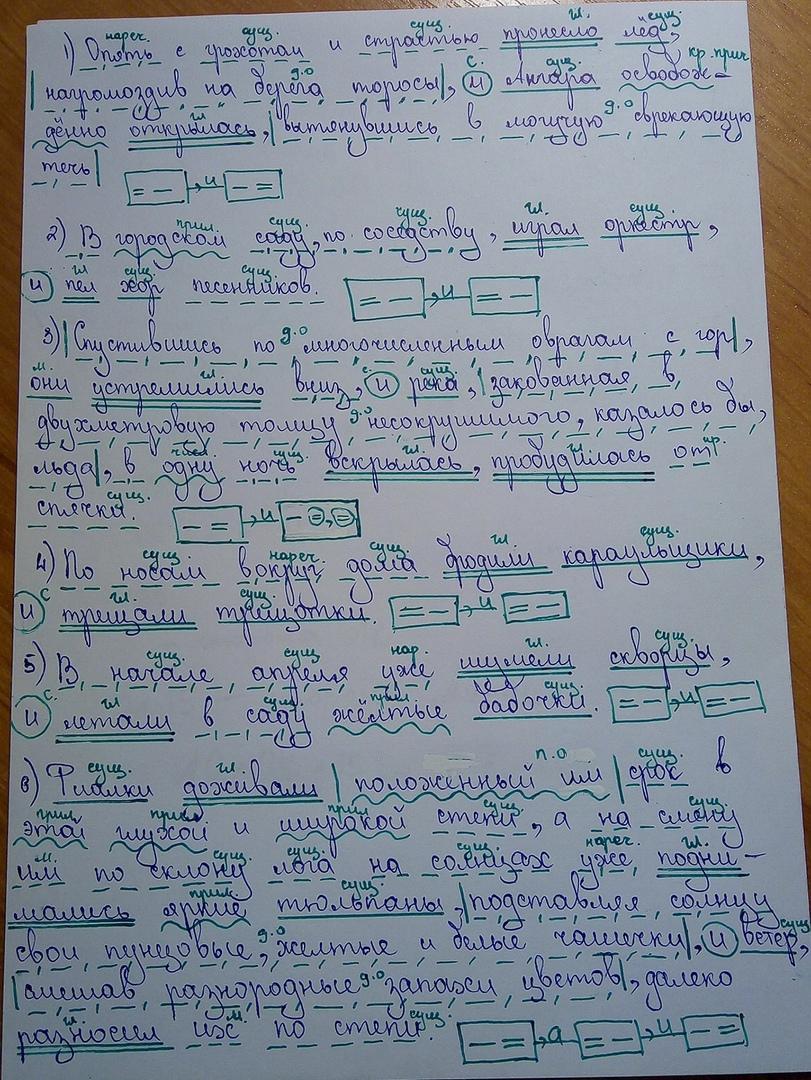 нареч. сущ. сущ. гл. сущ.
1) Опять с грохотом и страстью пронесло лёд,
д.о с. сущ. кр. прич
нагромоздив на берега торосы, и Ангара освобож-
гл д.о
дённо открылась, вытянувшись в могучую сверкающую
течь
[= -] → и [- =]
прил. сущ. сущ. гл. сущ.
2) В городском саду, по соседству, играл оркестр,
гл сущ. сущ.
и пел хор песенников. [= -] → и [= -]
д.о
3) Спустившись по многочисленным оврагам с гор,
м. гл. с. сущ.
они устремились вниз, и река, закованная в
д.о
двухметровую толщу несокрушимого, казалось бы,
числ. сущ. гл. гл. пр.
льда, в одну ночь вскрылась, пробудилась от
сущ.
спячки. [- =] → и [- =, =]
сущ. нареч. сущ. гл. сущ.
4) По ночам вокруг дома бродили караульщики,
с гл. сущ.
и трещали трещотки. [= -] → и [= -]
сущ. сущ нар. гл. сущ.
5) В начале апреля уже шумели скворцы,
с. гл сущ. прил сущ.
и летали в саду жёлтые бабочки. [= -] → и [= -]
сущ. гл. п.о сущ.
6) Фиалки доживали положенный им срок в
прил. прил. прил сущ. сущ.
этой глухой и широкой степи, а на смену
м. сущ. сущ. сущ. нареч. гл.
им по склону лога на солнцах уже подни-
прил. сущ.
мались яркие тюльпаны, подставляя солнцу
д.о сущ
свои пунцовые, желтые и белые чашечки, и ветер,
д.о
смешав разнородные запахи цветов, далеко
гл. м сущ.
разносил их по степи. [- =] → а [= -] → и [- =]